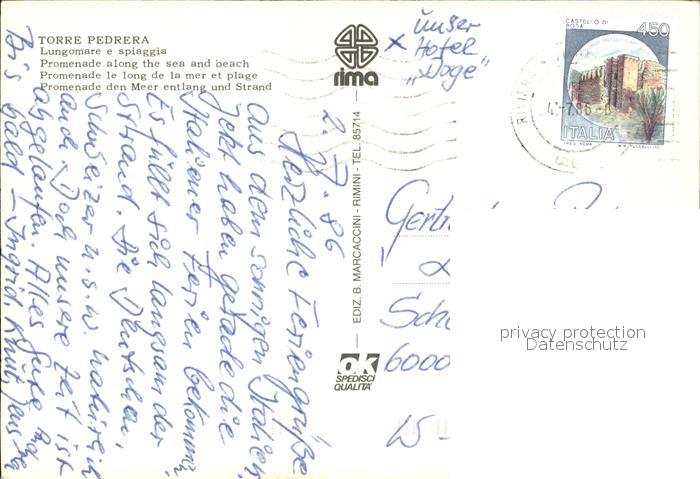 TORRE PEDRERA
Lungomare e spiaggia
Promenade along the sea and beach
Promenade le long de la mer et plage
Promenade den Meer entlang und Strand
rima
x unser
Hotel
„Doge"
CASTELLO DI
ROSA
450
ITALIA
EDIZ. B. MARCACCINI - RIMINI - TEL. 85714
ok
SPEDISCI
QUALITA'
2.7.86
Herzliche Feriengrüße
aus dem sonnigen Italien
Jetzt haben gerade die
Italiener Ferien bekommen,
Es füllt sich langsam der
Strand. Die Deutschen,
Schweizer u.s.w. natürlich
auch. Doch unsere Zeit ist
abgelaufen. Alles Gute
Bis bald - Ingrid Knut,
6000
W-
privacy protection
Datenschutz